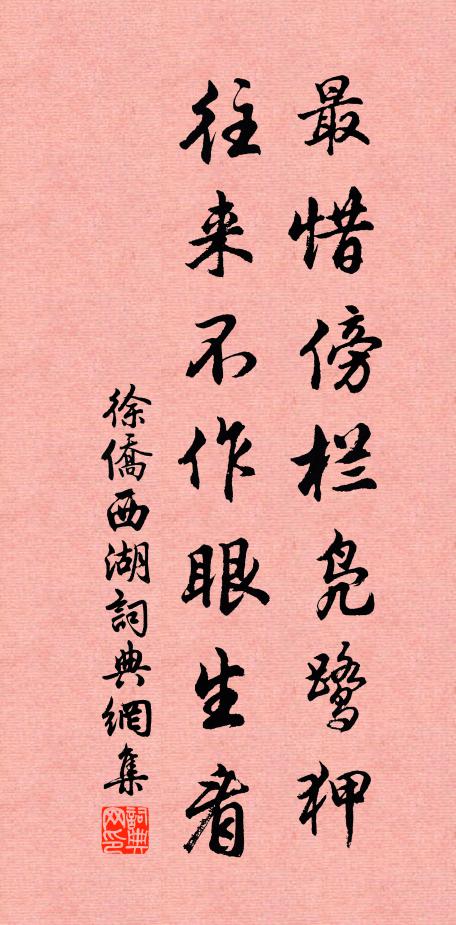 最惜傍栏凫鹭狎
往来不作眼生看
徐僑西湖詞典網集
詞典网印